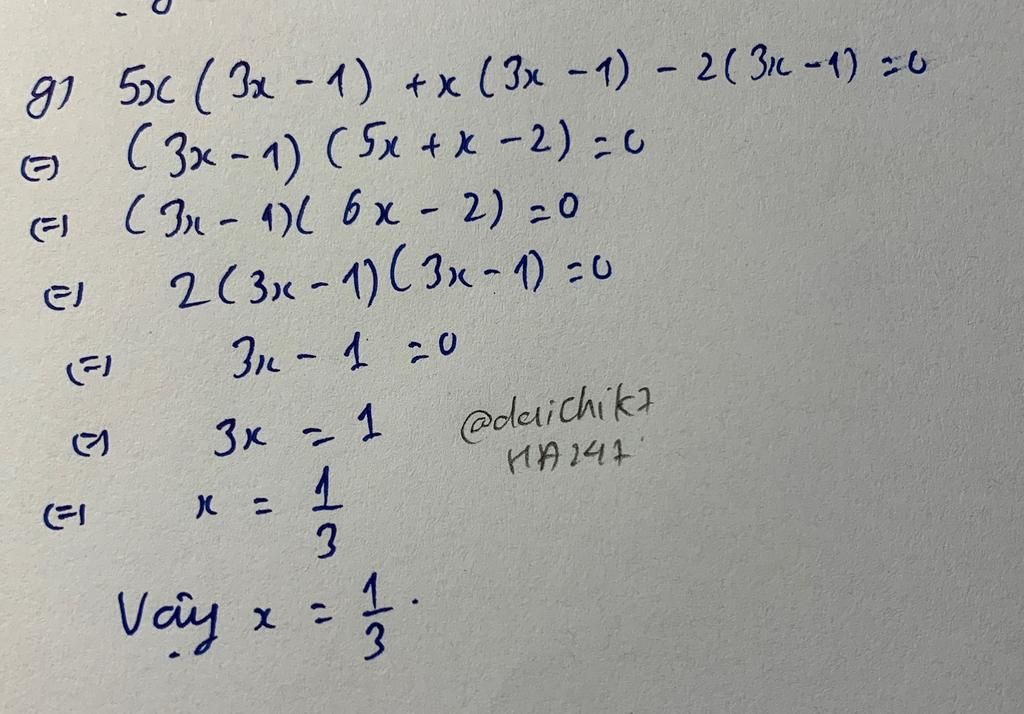 g) 5x(3x-1) +x(3x-1) - 2(3x-1) =0
(=) (3x-1) (5x+x-2) =0
(=) (3x-1)(6x-2) =0
(=) 2(3x-1)(3x-1) =0
(=) 3x-1 =0
(=) 3x = 1
(=) x = 1/3
Vậy x = 1/3.